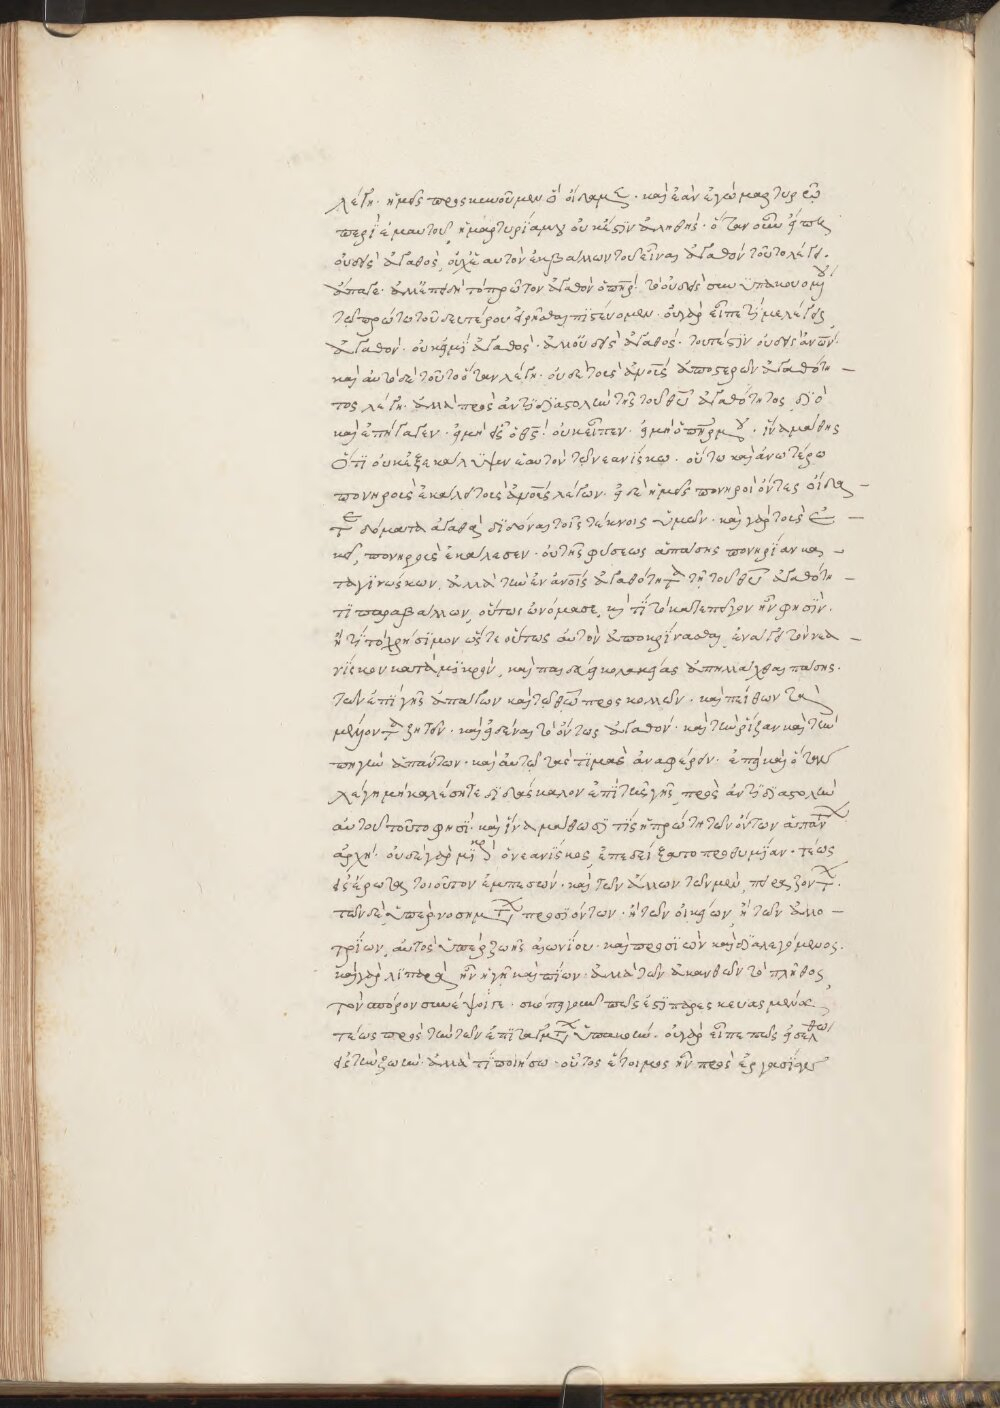 λέγη· ἡμεῖς προσκυνοῦμεν ὃ οἴδαμεν· καὶ ἐὰν ἐγὼ μαρτυρῶ
περὶ ἐμαυτοῦ, ἡ μαρτυρία μου οὐκ ἔστιν ἀληθής· ὅταν οὖν εἴπη
οὐδεὶς ἀγαθός, οὐχ ἑαυτὸν ἐκβάλλων τοῦ εἶναι ἀγαθὸν τοῦτο λέγει.
ἄπαγε· ἀλλ' ἐπειδὴ τὸ πρῶτον ἀγαθὸν ὁ πηρ τὸ οὐδεὶς
τῷ πρώτῳ τοῦ δευτέρου εἰρῆσθαι πιστεύομεν· οὐ γὰρ εἶπε τί με λέγεις
ἀγαθόν· οὐκ εἰμὶ ἀγαθός· ἀλλ' οὐδεὶς ἀγαθός· τουτέστιν οὐδεὶς ἀνων·
καὶ αὐτὸ δὲ τοῦτο ὅταν λέγη· οὐδὲ τοὺς ἀνους ἀποστερῶν ἀγαθότη –
τος λέγη· ἀλλὰ πρὸς ἀντιδιαστολὴν τῆς τοῦ θυ ἀγαθότητος, διὸ
καὶ ἐπήγαγεν· εἰ μὴ εἷς ὁ θς· οὐκ εἶπεν· εἰ μὴ ὁ πηρ μου· ἵνα μάθης
ὅτι οὐκ ἐξεκάλυψεν ἑαυτὸν τῷ νεανίσκω· οὕτω καὶ ἀνωτέρω
πονηροὺς ἐκάλει τοὺς ἀνους λέγων· εἰ δὲ ἡμεῖς πονηροὶ ὄντες οἴδα –
τε δόματα ἀγαθὰ διδόναι τοῖς τέκνοις ὑμῶν· καὶ γὰρ τοὺς ἐ –
κεῖ, πονηροὺς ἐκάλεσεν· οὐ τῆς φύσεως ἁπάσης πονηρίαν κα –
ταγινώσκων, ἀλλὰ τὴν ἐν ἀνοις ἀγαθότητα τῇ τοῦ θυ ἀγαθότη –
τι παραβάλλων, οὕτως ὠνόμασε, καὶ τί τὸ κατεπεῖγον ἦν φησίν·
ἢ τί τὸ χρήσιμον ὥστε οὕτως αὐτὸν ἀποκρίνασθαι, ἐνάγει τὸν νεα –
νίσκον κατὰ μικρόν, καὶ παιδεύει κολακείας ἀπηλλάχθαι πάσης·
τῶν ἐπὶ γῆς ἀπάγων καὶ τῷ θω προσηλῶν· καὶ πείθων τὰ
μέλλοντα ζητεῖν· καὶ εἰδέναι τὸ ὄντως ἀγαθόν· καὶ τὴν ῥίζαν καὶ τὴν
πηγὴν ἁπάντων· καὶ αὐτῷ τὰς τιμὰς ἀναφέρειν· ἐπεὶ καὶ ὅταν
λέγη μὴ καλέσητε διδάσκαλον ἐπὶ τῆς γῆς, πρὸς ἀντιδιαστολὴν
αὐτοῦ τοῦτο φησί· καὶ ἵνα μάθωσι τίς ἡ πρώτη τῶν ὄντων ἁπάντων
ἀρχή· οὐδὲ γὰρ μικρὰν ὁ νεανίσκος, ἐπεδείξατο προθυμίαν· τέως
εἰς ἔρωτα τοιοῦτον ἐμπεσών· καὶ τῶν ἄλλων τῶν μὲν, πειραζόντων·
τῶν δὲ ὑπὲρ νοσημάτων προσιόντων· ἢ τῶν οἰκείων, ἢ τῶν ἀλλο –
τρίων, αὐτὸς ὑπὲρ ζωῆς αἰωνίου· καὶ προσιὼν καὶ διαλεγόμενος·
καὶ γὰρ λιπαρὰ ἦν ἡ γῆ καὶ πίων· ἀλλὰ τῶν ἀκανθῶν τὸ πλῆθος,
τὸν σπόρον συνέπνιγε· σκόπει γοῦν πῶς ἐστι παρεσκευασμένος
τέως πρὸς τὴν τῶν ἐπιταγμάτων ὑπακοήν· οὐ γὰρ εἶπε πῶς εἰσέλθω
εἰς τὴν ζωήν· ἀλλὰ τί ποιήσω· οὕτως ἕτοιμος ἦν πρὸς ἐργασίαν